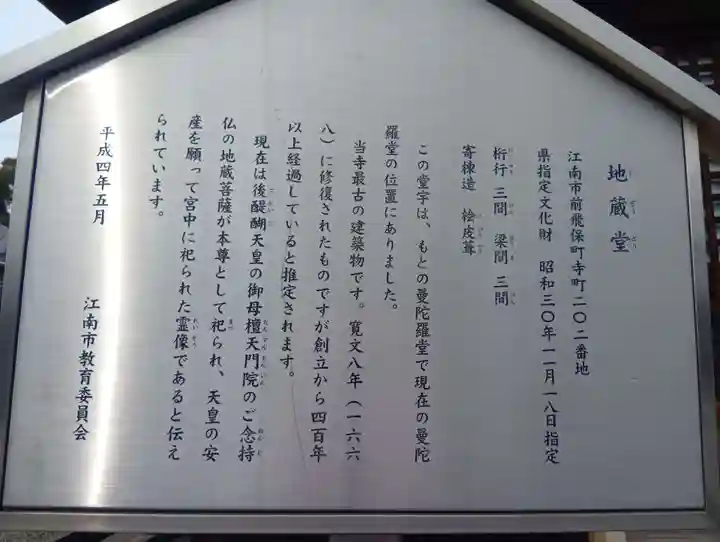 地蔵堂
江南市前飛保町寺町二〇二番地
県指定文化財　昭和三〇年一一月一八日指定
桁行　三間　梁間　三間
寄棟造　桧皮葺
この堂宇は、もとの曼陀羅堂で現在の曼陀
羅堂の位置にありました。
当寺最古の建築物です。寛文八年（一六六
八）に修復されたものですが創立から四百年
以上経過していると推定されます。
現在は後醍醐天皇の御母檀天門院のご念持
仏の地蔵菩薩が本尊として祀られ、天皇の安
産を願って宮中に祀られた霊像であると伝え
られています。
平成四年五月
江南市教育委員会